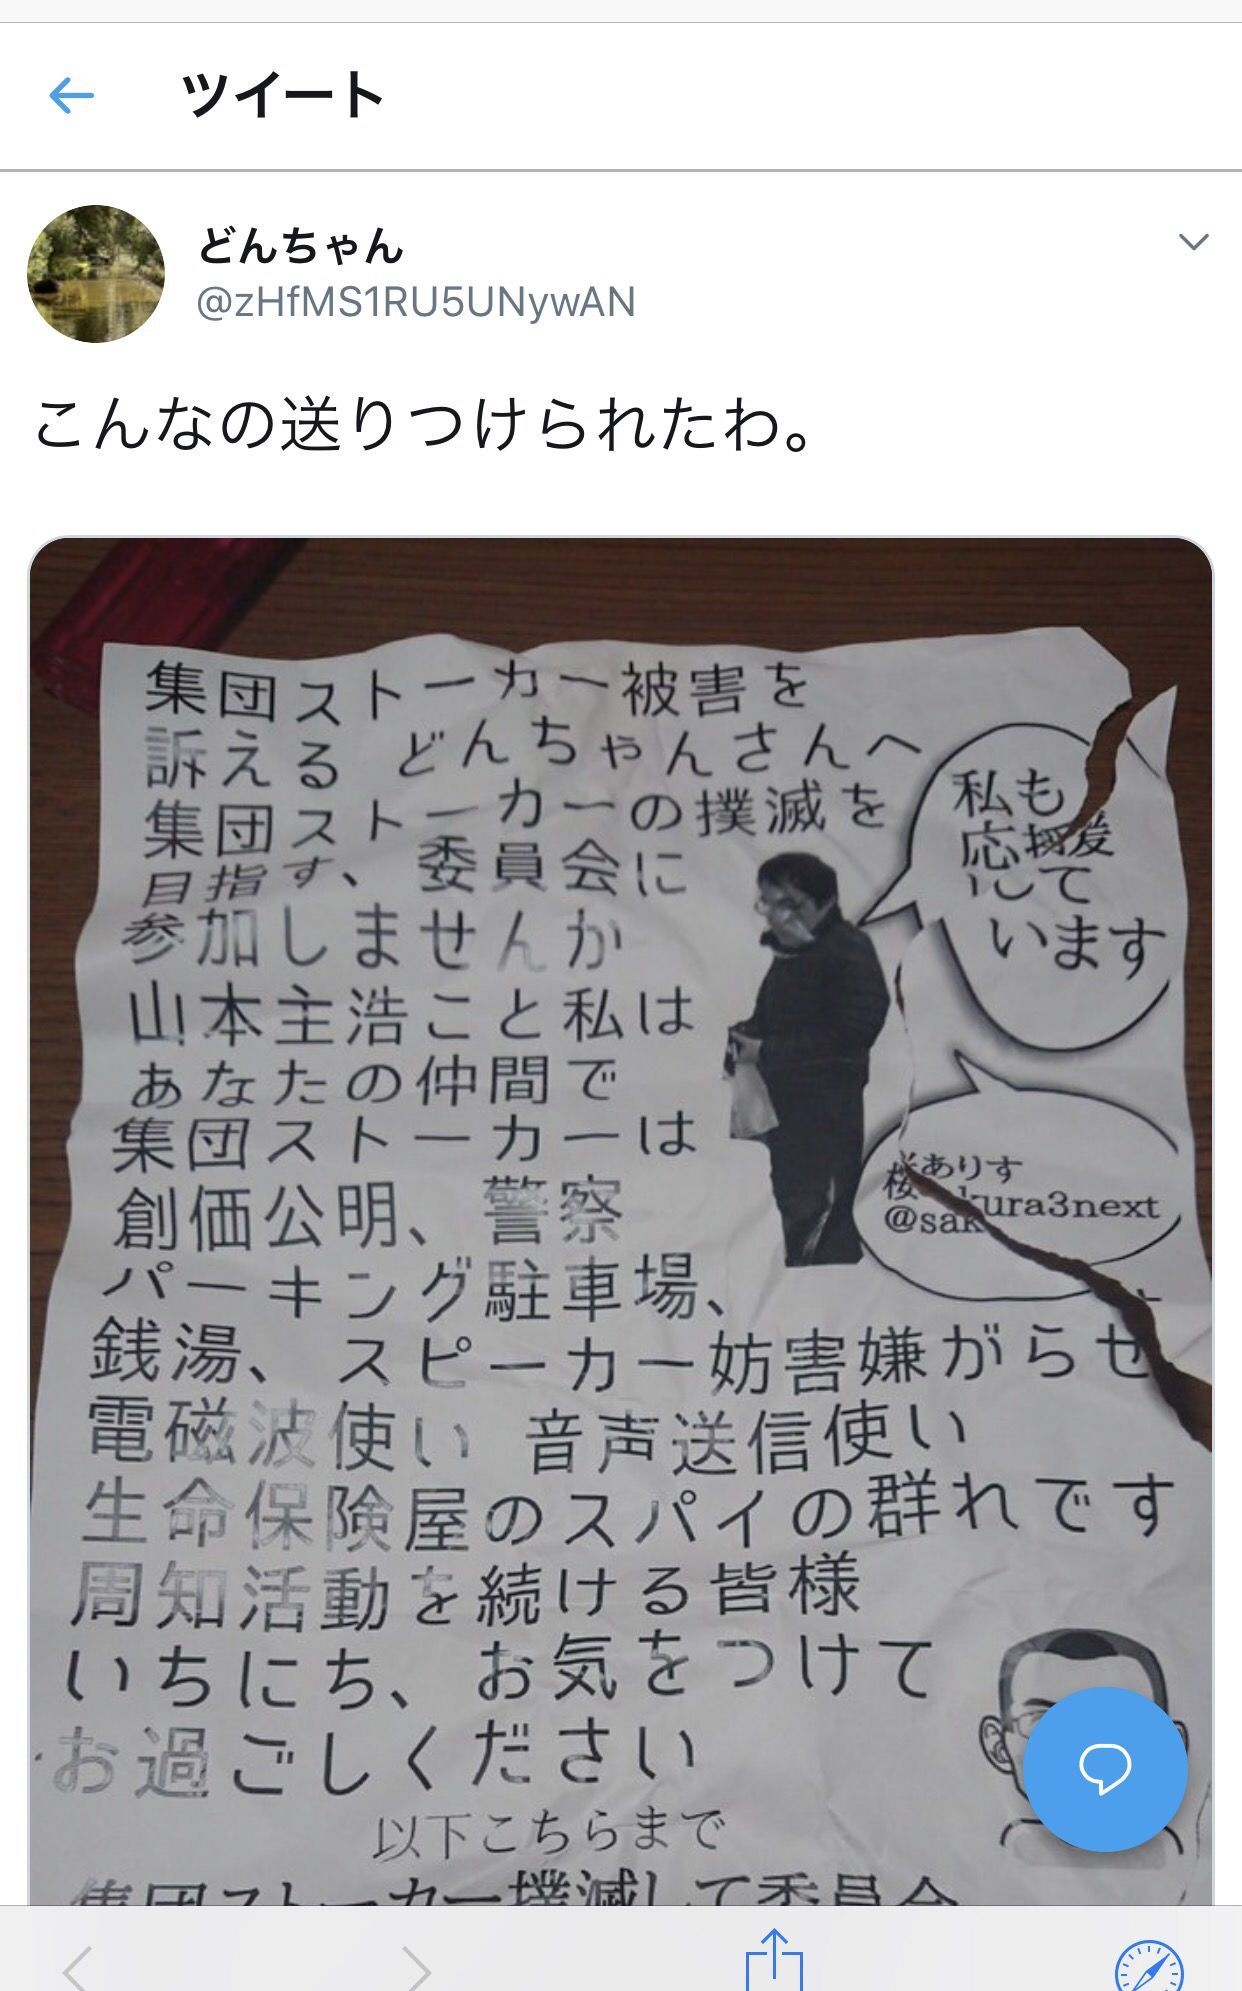 ツイート
どんちゃん
@zHfMS1RU5UNywAN
こんなの送りつけられたわ。
集団ストーカー被害を
訴える どんちゃんさんへ
集団ストーカーの撲滅を
目指す、委員会に
参加しませんか
山本主浩こと私は
あなたの仲間で
集団ストーカーは
創価公明、警察
パーキング駐車場、
銭湯、スピーカー妨害嫌がらせ
電磁波使い 音声送信使い
生命保険屋のスパイの群れです
周知活動を続ける皆様
いちにち、お気をつけて
お過ごしください
以下こちらまで
集団ストーカー撲滅して委員会
私も
応援
して
います
桜ありす
@sakura3next